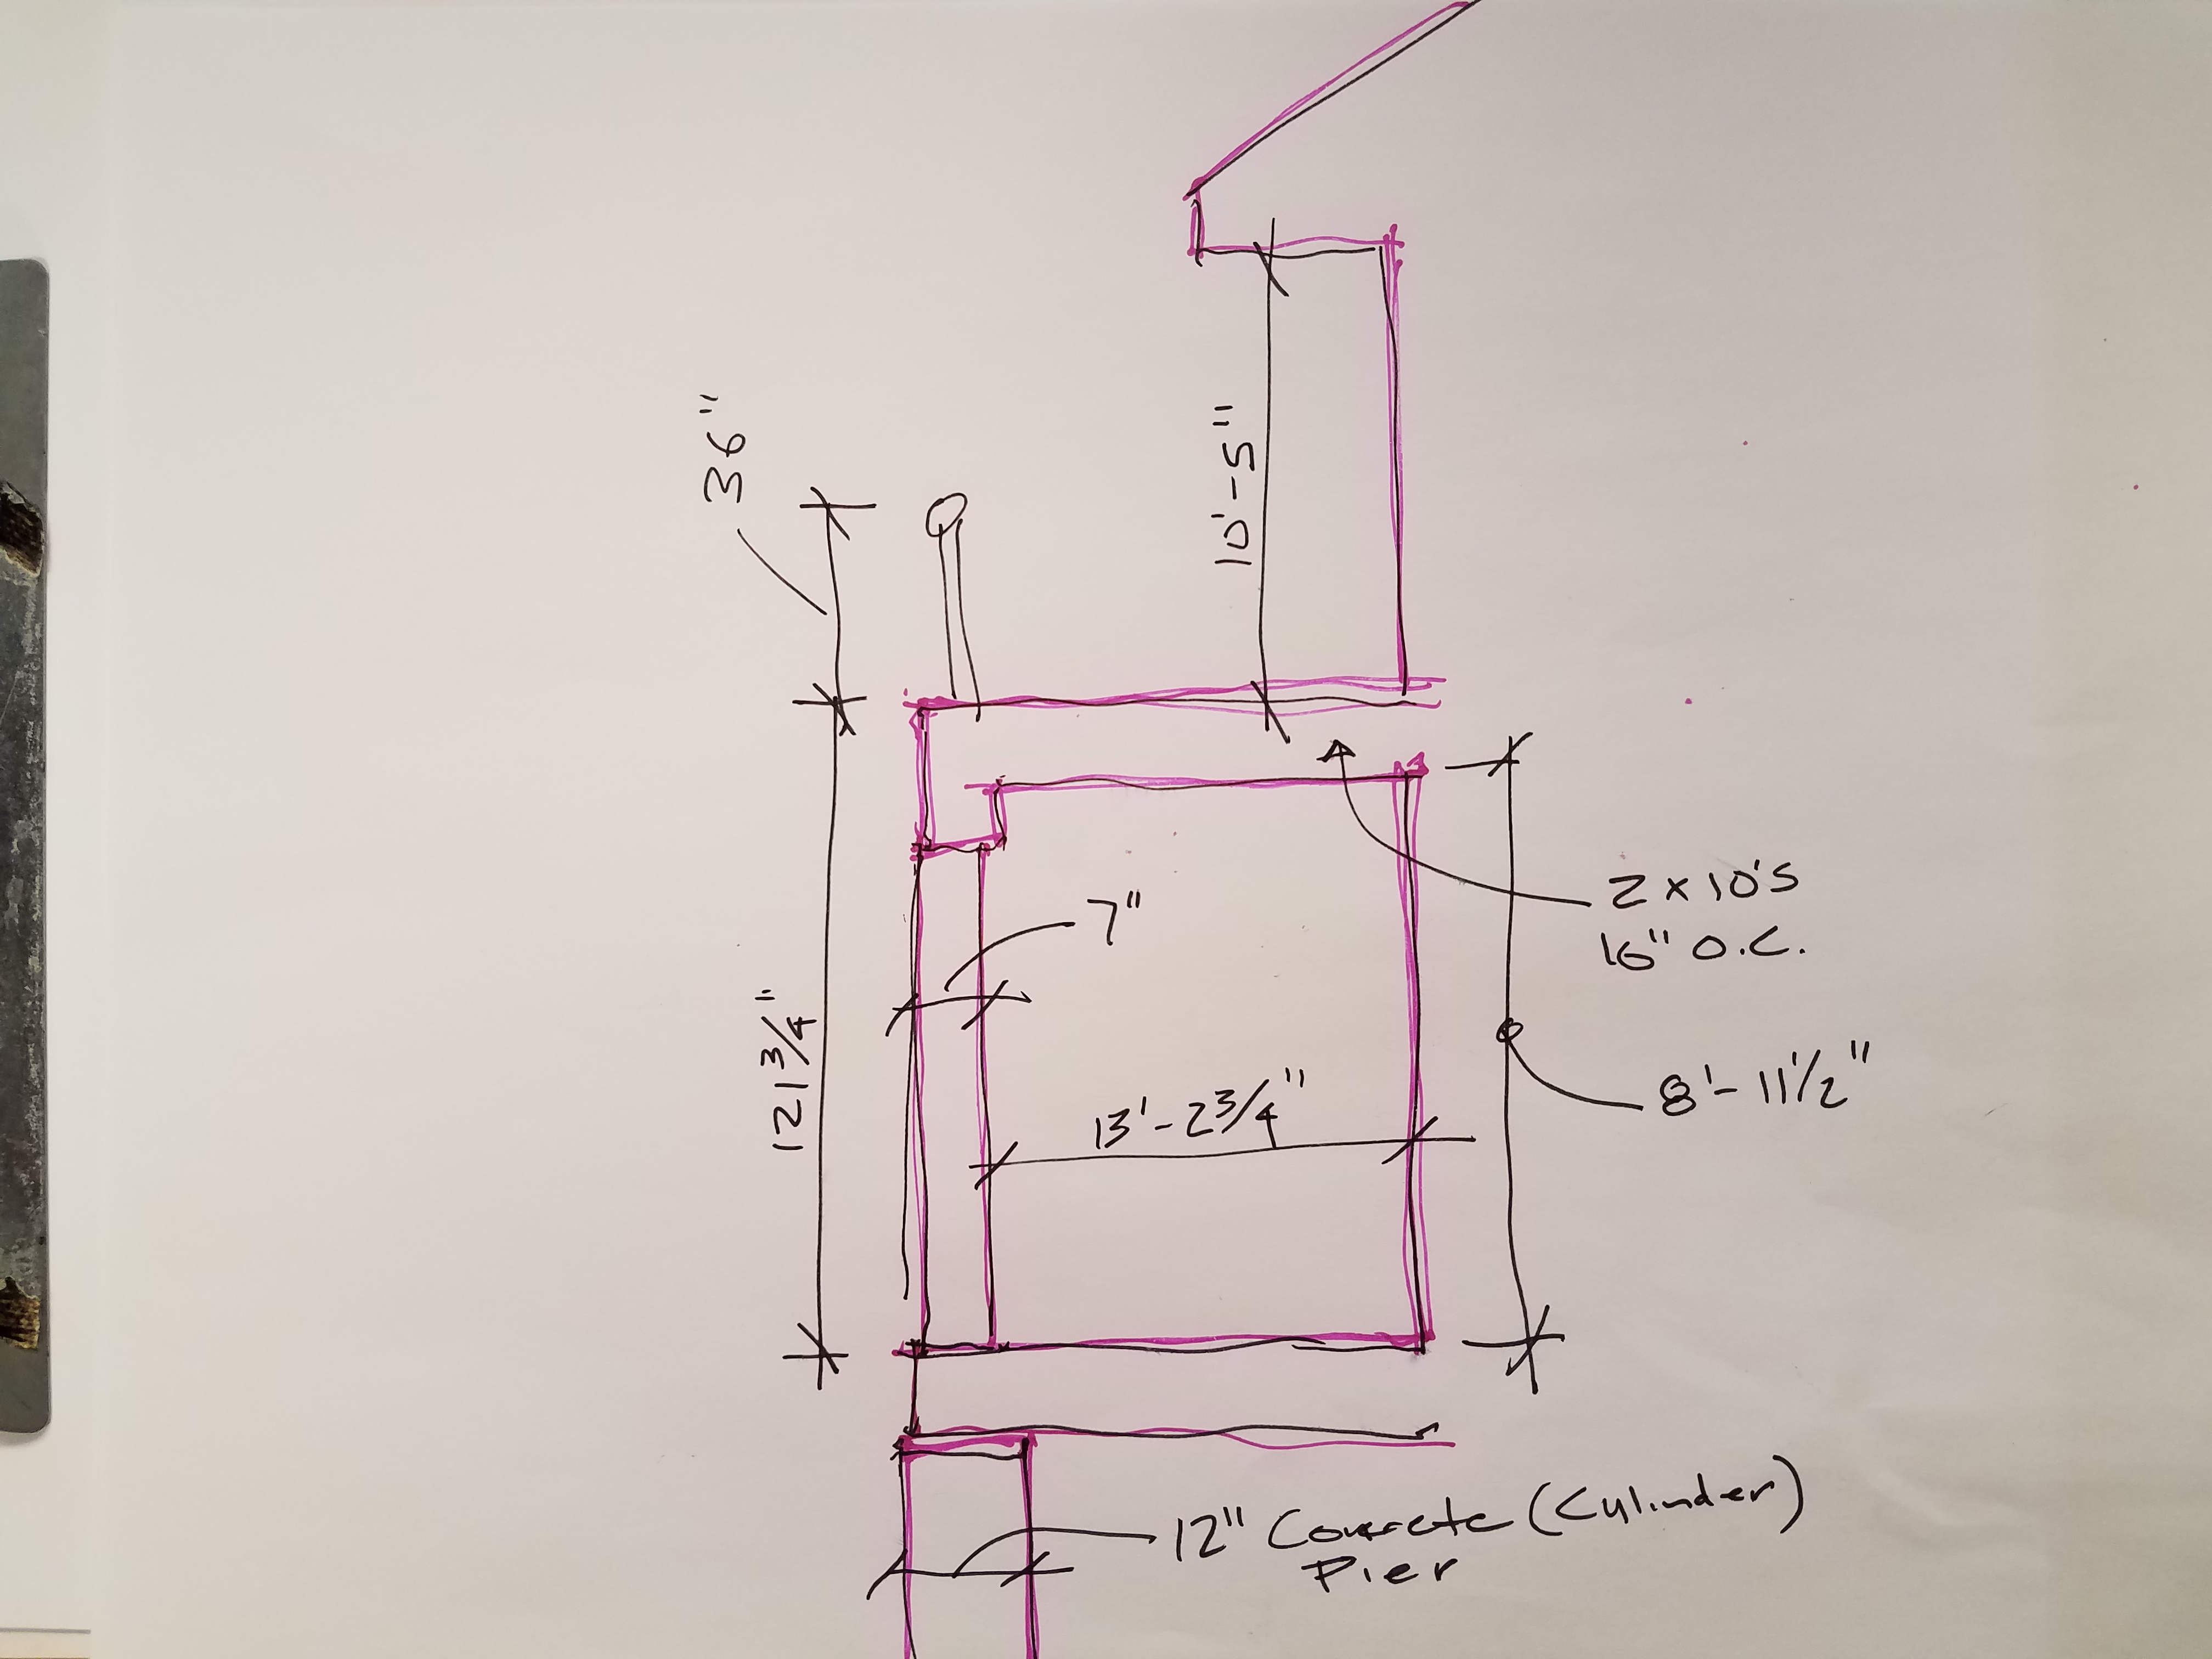 36"
10'-5"
2 x 10'S
16" O.C.
7"
121 3/4"
8'- 11 1/2"
13'- 2 3/4"
12" Concrete (Cylinder)
Pier